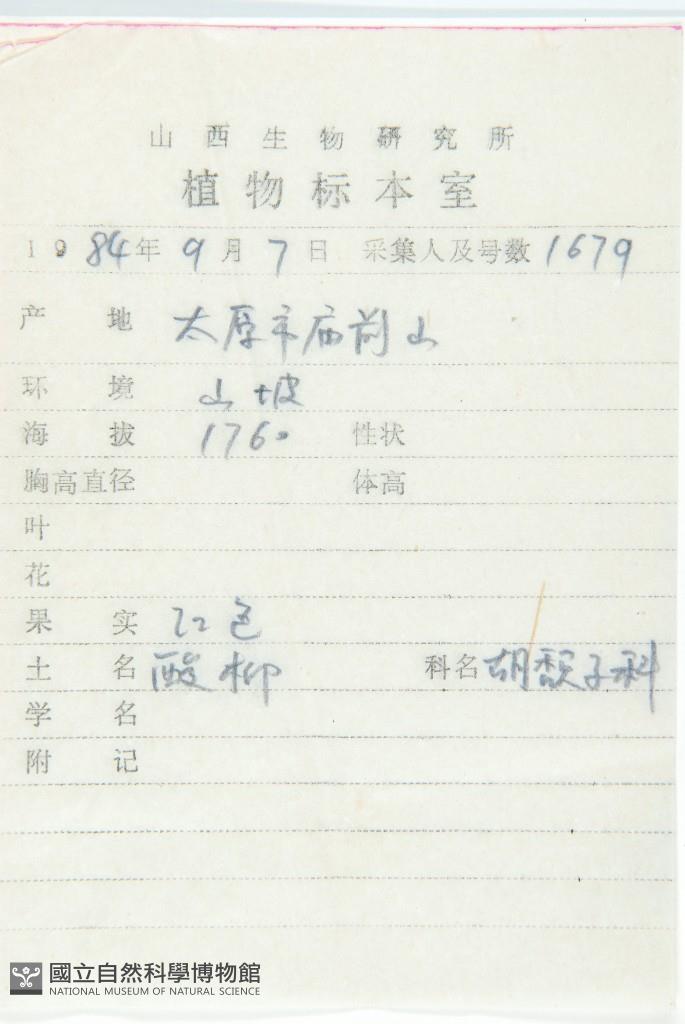 山西生物研究所
植物标本室
1984年9月7日 采集人及号数 1679
产地 太原市庙前山
环境 山坡
海拔 1760 性状
胸高直径 体高
叶
花
果实 红色
土名 酸柳 科名 胡颓子科
学名
附记
國立自然科學博物館
NATIONAL MUSEUM OF NATURAL SCIENCE